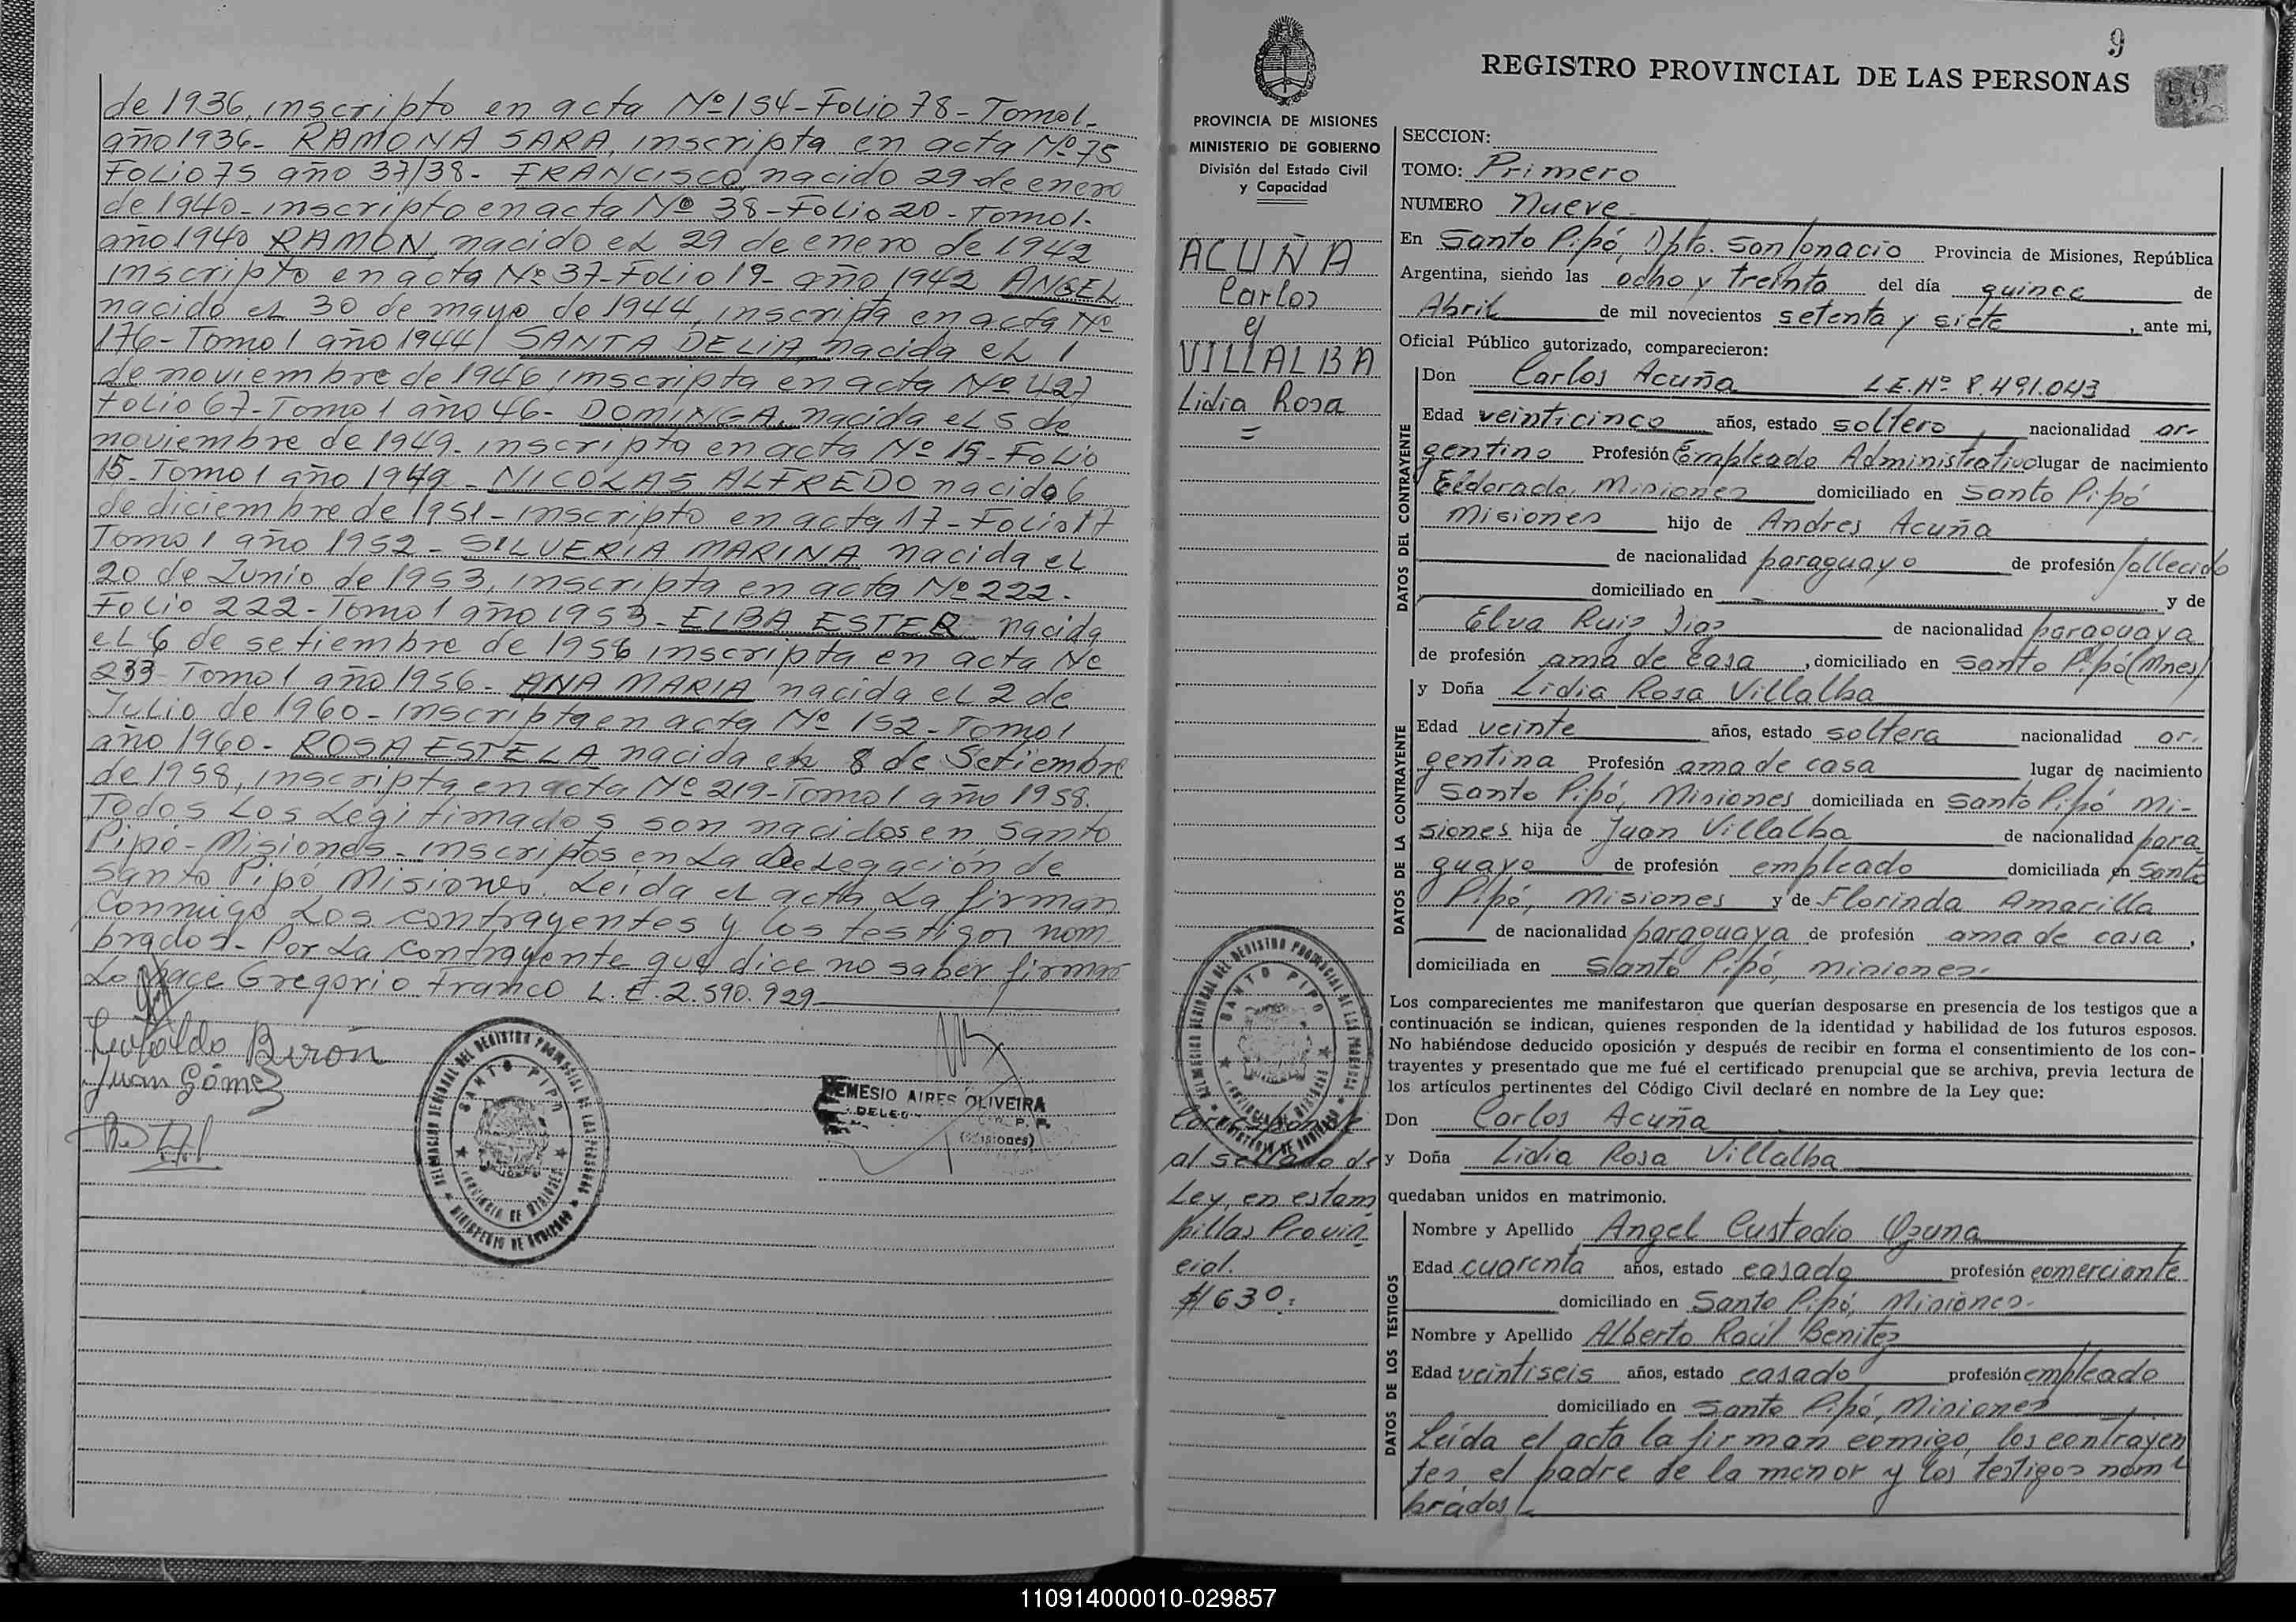 de 1936, inscripto en acta Nº 154-Folio 78-Tomo1-
año 1936- RAMONA SARA, inscripta en acta Nº 75
Folio 75 año 37/38- FRANCISCO, nacido 29 de enero
de 1940- inscripto en acta Nº 38-Folio 20-Tomo 1-
año 1940 RAMON, nacido el 29 de enero de 1942
inscripto en acta Nº 37-Folio 19- año 1942 ANGEL
nacido el 30 de mayo de 1944, inscripta en acta Nº
176- Tomo 1 año 1944/ SANTA DELIA nacida el 1
de noviembre de 1946, inscripta en acta Nº 427
Folio 67-Tomo 1 año 46- DOMINGA, nacida el 5 de
noviembre de 1949- inscripta en acta Nº 15-Folio
15-Tomo 1 año 1949- NICOLAS ALFREDO nacido 6
de diciembre de 1951-inscripto en acta 17-Folio 17
Tomo 1 año 1952- SILVERIA MARINA nacida el
20 de Junio de 1953, inscripta en acta Nº 222-
Folio 222-Tomo 1 año 1953- ELBA ESTER nacida
el 6 de setiembre de 1956 inscripta en acta Nº
233- Tomo 1 año 1956- ANA MARIA nacida el 2 de
Julio de 1960- inscripta en acta Nº 152-Tomo 1
año 1960- ROSA ESTELA nacida el 8 de Setiembre
de 1958, inscripta en acta Nº 219-Tomo 1 año 1958.
Todos los legitimados son nacidos en Santo
Pipó-Misiones-inscriptos en la Delegación de
Santo Pipó Misiones. Leida el acta la firman
conmigo los contrayentes y los testigos nom-
brados- Por la contrayente que dice no saber firmar
lo hace Gregorio Franco L.E. 2.590.929
Leopoldo Birón
Juan Gómez
DELEGACION REGIONAL DEL REGISTRO PROVINCIAL DE LAS PERSONAS
SANTO PIPO
PROVINCIA DE MISIONES
MINISTERIO DE GOBIERNO
NEMESIO AIRES OLIVEIRA
(Misiones)
9
REGISTRO PROVINCIAL DE LAS PERSONAS
59
PROVINCIA DE MISIONES
MINISTERIO DE GOBIERNO
División del Estado Civil
y Capacidad
ACUÑA
Carlos
c/
VILLALBA
Lidia Rosa
=
DELEGACION REGIONAL DEL REGISTRO PROVINCIAL DE LAS PERSONAS
SANTO PIPO
PROVINCIA DE MISIONES
MINISTERIO DE GOBIERNO
Corresponde
al sellado de
Ley, en estam
pillas Provin
cial.
$ 630=
SECCION:
TOMO: Primero
NUMERO Nueve
En Santo Pipó, Dpto. San Ignacio Provincia de Misiones, República
Argentina, siendo las ocho y treinta del día quince de
Abril de mil novecientos setenta y siete, ante mi,
Oficial Público autorizado, comparecieron:
DATOS DEL CONTRAYENTE
Don Carlos Acuña L.E.Nº 8.491.043
Edad veinticinco años, estado soltero nacionalidad ar-
gentino Profesión Empleado Administrativo lugar de nacimiento
Eldorado, Misiones domiciliado en Santo Pipó
Misiones hijo de Andres Acuña
de nacionalidad paraguayo de profesión fallecido
domiciliado en y de
Elva Ruiz Diaz de nacionalidad paraguaya
de profesión ama de casa, domiciliado en Santo Pipó (Mnes)
DATOS DE LA CONTRAYENTE
y Doña Lidia Rosa Villalba
Edad veinte años, estado soltera nacionalidad ar-
gentina Profesión ama de casa lugar de nacimiento
Santo Pipó, Misiones domiciliada en Santo Pipó Mi-
siones hija de Juan Villalba de nacionalidad para
guayo de profesión empleado domiciliada en Santo
Pipó, Misiones y de Florinda Amarilla
de nacionalidad paraguaya de profesión ama de casa,
domiciliada en Santo Pipó, Misiones.
Los comparecientes me manifestaron que querían desposarse en presencia de los testigos que a
continuación se indican, quienes responden de la identidad y habilidad de los futuros esposos.
No habiéndose deducido oposición y después de recibir en forma el consentimiento de los con-
trayentes y presentado que me fué el certificado prenupcial que se archiva, previa lectura de
los artículos pertinentes del Código Civil declaré en nombre de la Ley que:
Don Carlos Acuña
y Doña Lidia Rosa Villalba
quedaban unidos en matrimonio.
DATOS DE LOS TESTIGOS
Nombre y Apellido Angel Custodio Ozuna
Edad cuarenta años, estado casado profesión comerciante
domiciliado en Santo Pipó, Misiones.
Nombre y Apellido Alberto Raúl Benitez
Edad veintiseis años, estado casado profesión empleado
domiciliado en Santo Pipó, Misiones
Leída el acta la firman comigo, los contrayen
tes el padre de la menor y los testigos nom-
brados/-
110914000010-029857